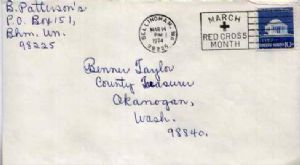 B. Patterson's
P.O. Box 151,
Bhm. Wn.
98225
BELLINGHAM, WA
MAR 14
PM
1974
98225
MARCH
RED CROSS
MONTH
Benner Taylor
County Treasurer
Okanogan,
Wash.
98840.